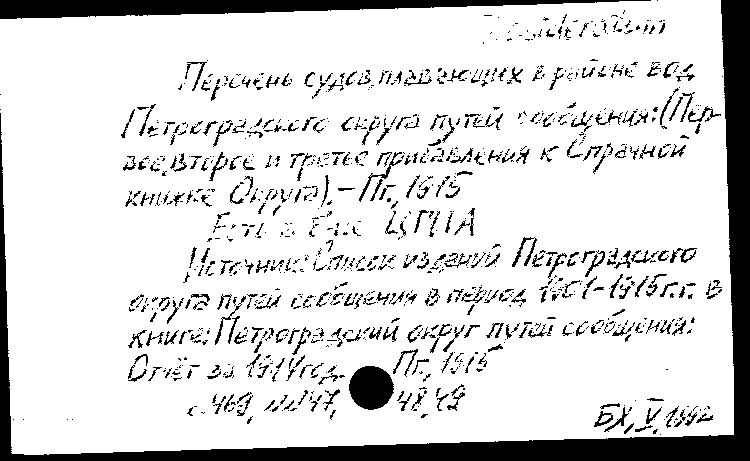 Desideratum
Перечень судов, плавающих в районе вод
Петроградского округа путей сообщения: (Пер-
вое, второе и третье прибавления к Справочной
книжке Округа). – Пг., 1915
Есть в Б-ке ЦГИА
Источник: Список изданий Петроградского
округа путей сообщения в период 1901–1915 г.г. в
книге: Петроградский округ путей сообщения:
Отчёт за 1914 год. Пг., 1915
с. 469, №№ 47, 48, 49
БХ, V, 1992